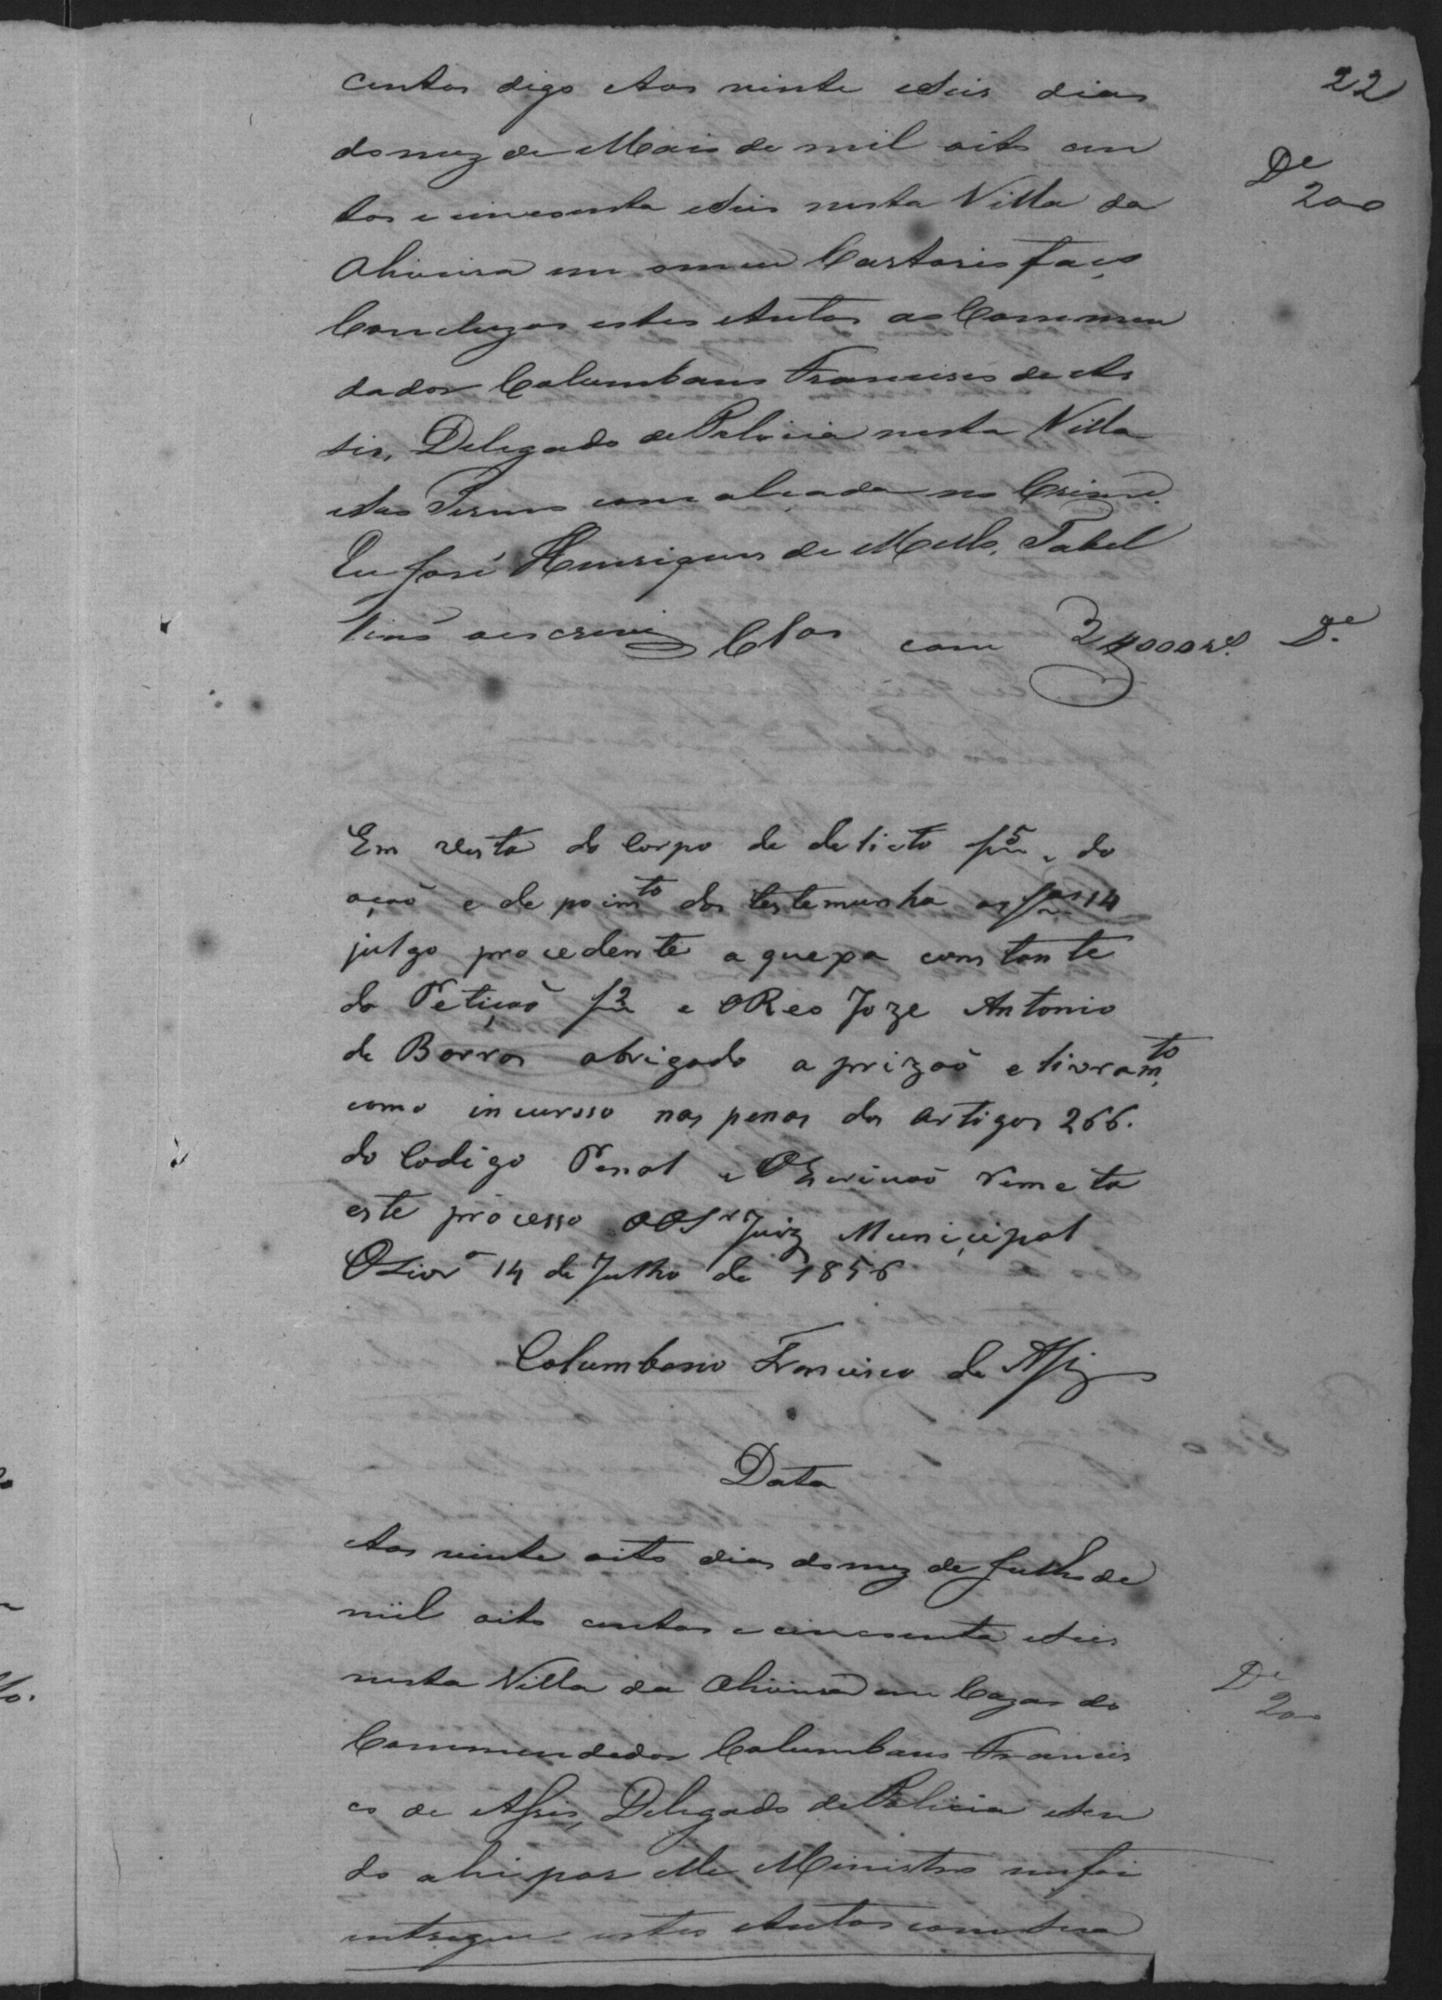 22
centos digo Aos vinte eSeis dias
do mez de Maio de mil oito cen
tos e cincoenta eSeis nesta Villa da
Oliveira em o meu Cartorio faço
Concluzos estes Autos ao Commen
dador Columbano Francisco de As
sis, Delegado de Policia nesta Villa
eSeo Termo com alçada no Crime.
Eu José Henriques de Mello, Tabel
liaõ o escrevi Clos com 24000 rs. De
De
200
Em vista do Corpo de delicto f 5 e do
açaõ e depoimto das testemunha as fas 14
julgo procedente a queixa constante
da Petiçaõ f 2 e O Reo Joze Antonio
de Barros obrigado a prizaõ e livramto
como incursso nas penas dos artigos 266.
do Codigo Penal e O Escrivaõ remeta
este processo AO Sr Juiz Municipal
Olivra 14 de Julho de 1856
Columbano Francisco de Assis
Data
Aos vinte oito dias do mez de Julho de
mil oito centos e cincoenta eSeis
nesta Villa da Oliveira em Cazas do
Commendador Columbano Francis
co de Assis, Delegado de Policia eSen
do ahi por elle Ministro me foi
entregue estes Autos com Sua
De
200